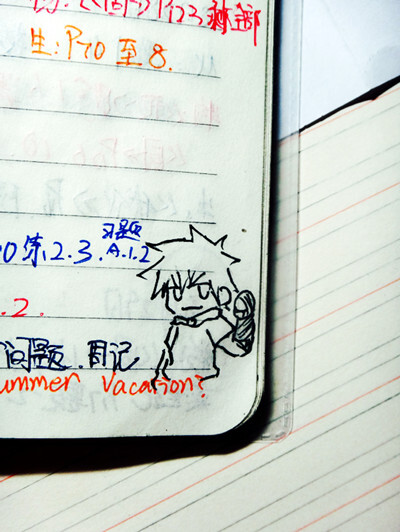 P123 剩全部
生:P70至8.
习题
0第2.3.A.1.2
.2.
问题.周记
ummer vacation?